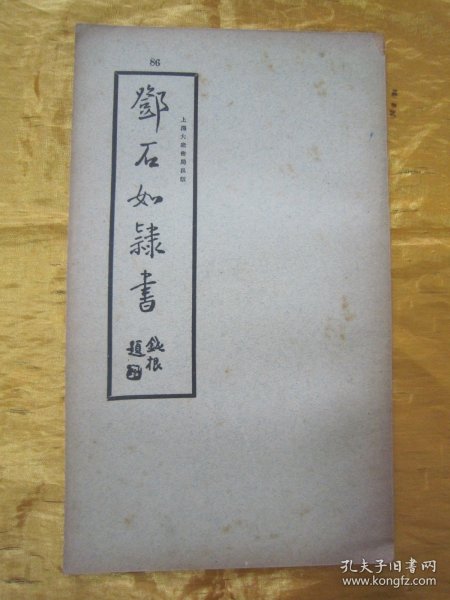 86
上海大眾書局出版
鄧石如隸書
鈍根
題
孔夫子旧书网
www.kongfz.com